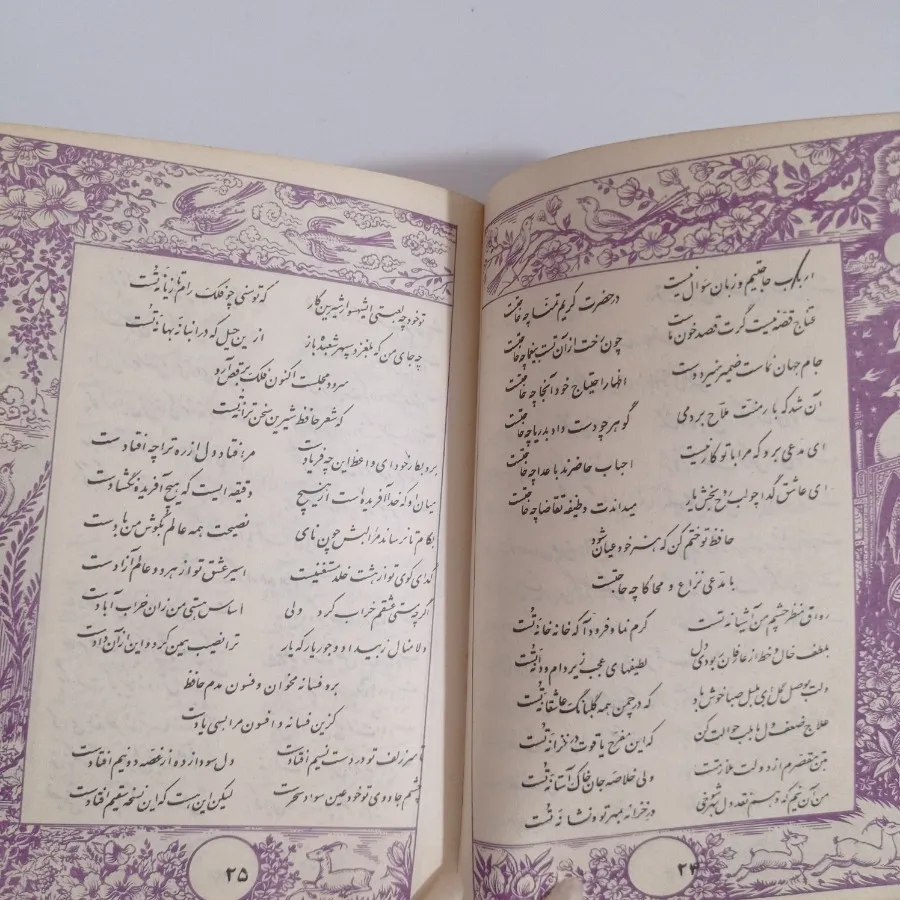 ارباب حاجتیم و زبان سؤال نیست در حضرت کریم تمنا چه حاجتست
محتاج قصه نیست گرت قصد خون ماست چون رخت از آن تست بیغما چه حاجتست
جام جهان نماست ضمیر منیر دوست اظهار احتیاج خود آنجا چه حاجتست
آن شد که بار منت ملاح بردمی گوهر چو دست داد بدریا چه حاجتست
ای مدعی برو که مرا با تو کار نیست احباب حاضرند باعدا چه حاجتست
ای عاشق گدا چو لب روح بخش یار میداندت وظیفه تقاضا چه حاجتست
حافظ تو ختم کن که هنر خود عیان شود
با مدعی نزاع و محاکا چه حاجتست
رواق منظر چشم من آشیانه تست کرم نما و فرود آ که خانه خانه تست
بلطف خال و خط از عارفان ربودی دل لطیفهای عجب زیر دام و دانه تست
دلت بوصل گل ای بلبل صبا خوش باد که در چمن همه گلبانگ عاشقانه تست
علاج ضعف دل ما بلب حوالت کن که این مفرح یاقوت در خزانه تست
بتن مقصرم از دولت ملازمتت ولی خلاصه جان خاک آستانه تست
من آن نیم که دهم نقد دل بهر شوخی در خزانه بمهر تو و نشانه تست
۲۴
تو خود چه لعبتی ای شهسوار شیرین کار که توسنی چو فلک رام تازیانه تست
چه جای من که بلغزد سپهر شعبده باز ازین حیل که در انبانه بهانه تست
سرود مجلست اکنون فلک برقص آرد
که شعر حافظ شیرین سخن ترانه تست
برو بکار خود ای واعظ این چه فریادست مرا فتاد دل از ره ترا چه افتادست
میان او که خدا آفریده است از هیچ دقیقه ایست که هیچ آفریده نگشادست
بکام تا نرساند مرا لبش چون نای نصیحت همه عالم بگوش من بادست
گدای کوی تو از هشت خلد مستغنیست اسیر عشق تو از هر دو عالم آزادست
اگرچه مستی عشقم خراب کرد ولی اساس هستی من زان خراب آبادست
دلا منال ز بیداد و جور یار که یار ترا نصیب همین کرد و این از آن دادست
برو فسانه مخوان و فسون مدم حافظ
کزین فسانه و افسون مرا بسی یادست
تا سر زلف تو در دست نسیم افتادست دل سودازده از غصه دو نیم افتادست
چشم جادوی تو خود عین سواد سحرست لیکن این هست که این نسخه سقیم افتادست
۲۵